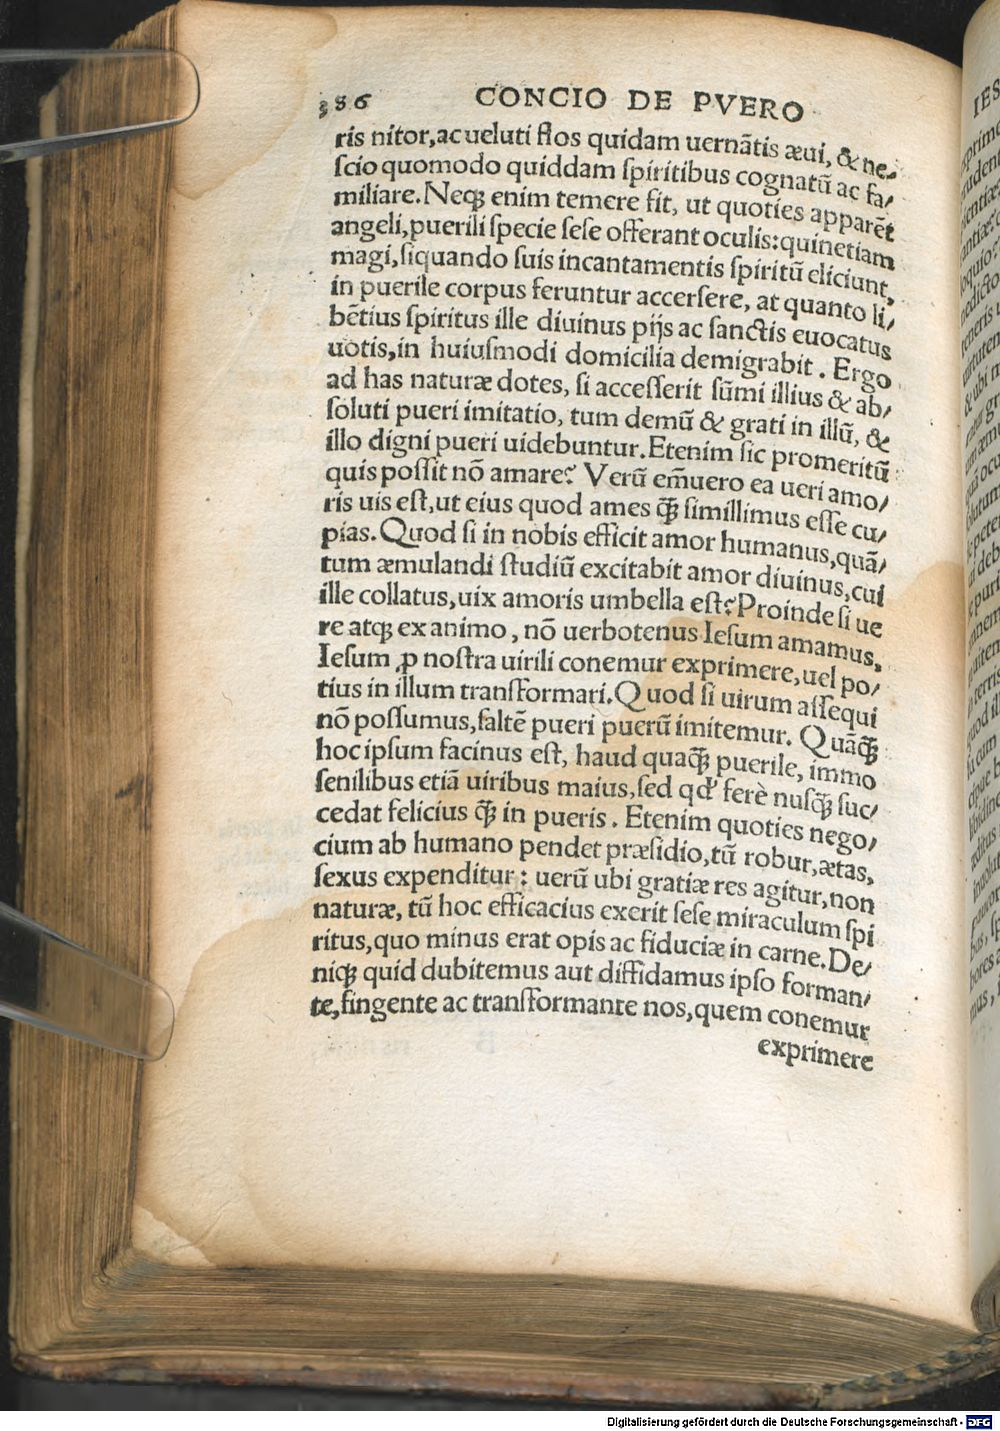 386 CONCIO DE PVERO
ris nitor, ac ueluti flos quidam uernãtis æui, & ne/
ſcio quomodo quiddam ſpiritibus cognatũ ac fa/
miliare. Neqꝫ enim temere fit, ut quoties apparẽt
angeli, puerili ſpecie ſeſe offerant oculis: quinetiam
magi, ſiquando ſuis incantamentis ſpiritũ eliciunt,
in puerile corpus feruntur accerſere, at quanto li/
bẽtius ſpiritus ille diuinus pijs ac ſanctis euocatus
uotis, in huiuſmodi domicilia demigrabit. Ergo
ad has naturæ dotes, ſi acceſſerit ſũmi illius & ab/
ſoluti pueri imitatio, tum demũ & grati in illũ, &
illo digni pueri uidebuntur. Etenim ſic promeritũ
quis poſſit nõ amare? Verũ em̃uero ea ueri amo/
ris uis eſt, ut eius quod ames q̃ꝫ ſimillimus eſſe cu/
pias. Quod ſi in nobis efficit amor humanus, quã/
tum æmulandi ſtudiũ excitabit amor diuinus, cui
ille collatus, uix amoris umbella eſt? Proinde ſi ue
re atqꝫ ex animo, nõ uerbotenus Ieſum amamus,
Ieſum ꝓ noſtra uirili conemur exprimere, uel po/
tius in illum transformari. Quod ſi uirum aſſequi
nõ poſſumus, ſaltẽ pueri puerũ imitemur. Quãq̃ꝫ
hoc ipſum facinus eſt, haud quaq̃ꝫ puerile, immo
ſenilibus etiã uiribus maius, ſed qď ferè nuſq̃ꝫ ſuc/
cedat felicius q̃ꝫ in pueris. Etenim quoties nego/
cium ab humano pendet præſidio, tũ robur, ætas,
ſexus expenditur: uerũ ubi gratiæ res agitur, non
naturæ, tũ hoc efficacius exerit ſeſe miraculum ſpi
ritus, quo minus erat opis ac fiduciæ in carne. De/
niqꝫ quid dubitemus aut diffidamus ipſo forman/
te, fingente ac transformante nos, quem conemur
exprimere
Digitalisierung gefördert durch die Deutsche Forschungsgemeinschaft - DFG